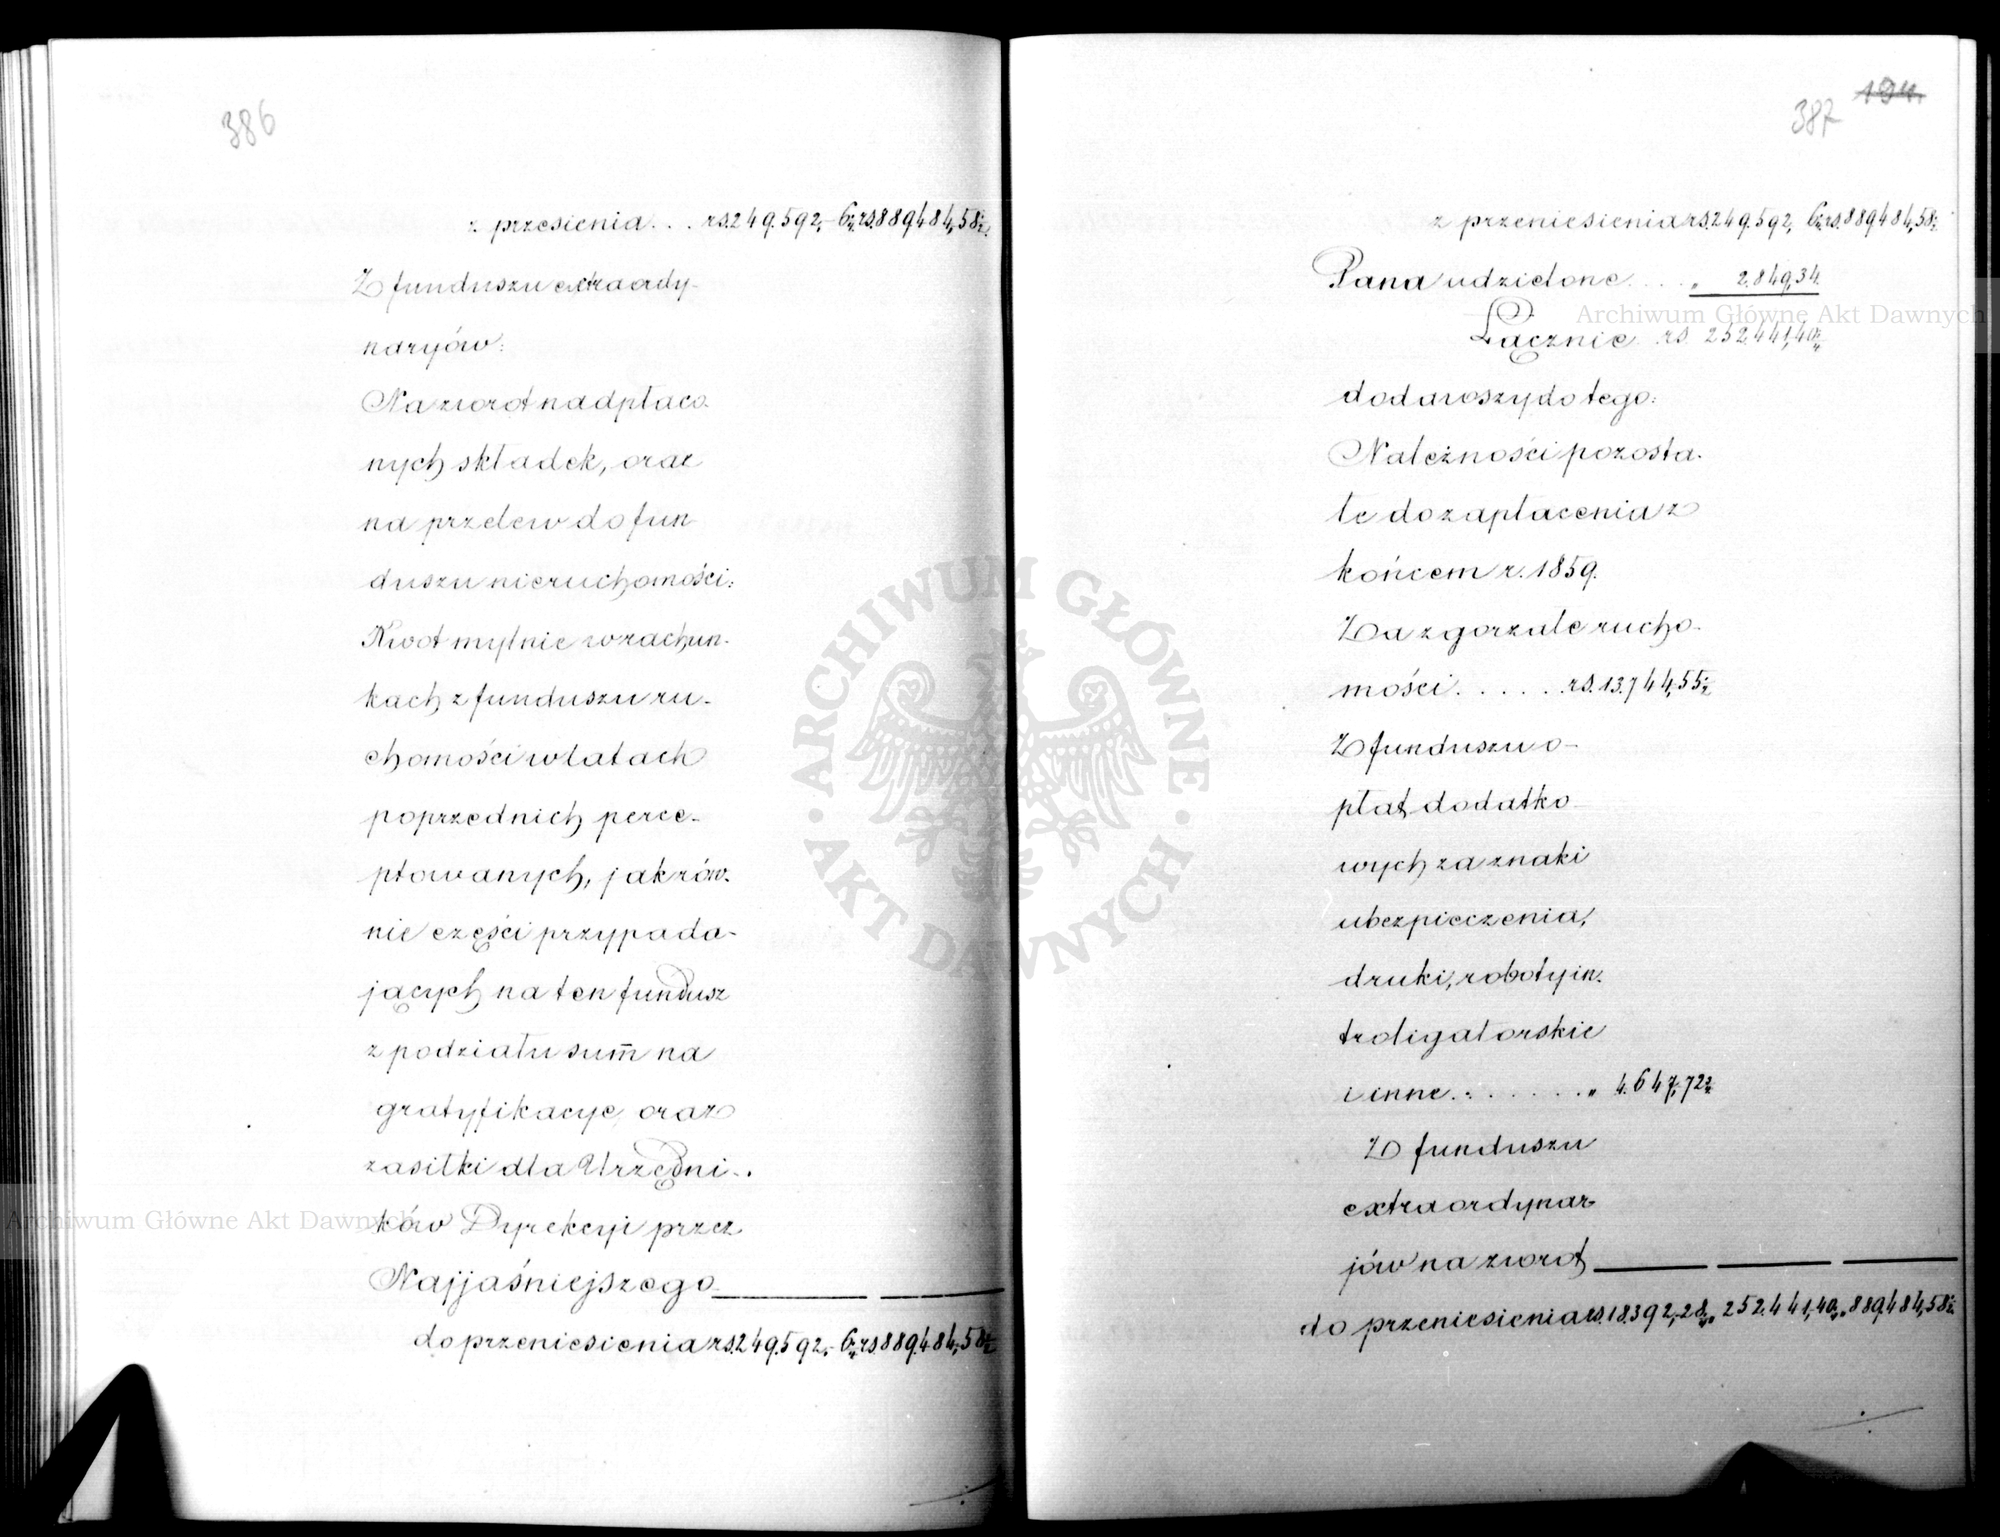 386
z przesienia . . . rs. 249.592,- 6½ rs. 889.484,58½.
Z funduszu extraordy-
naryów:
Na zwrot nadpłaco-
nych składek, oraz
na przelew do fun-
duszu nieruchomości:
Kwot mylnie w rachun-
kach z funduszu ru-
chomości w latach
poprzednich perce-
ptowanych, jak rów-
nie części przypada-
jących na ten fundusz
z podziału sum̄ na
gratyfikacye, oraz
zasiłki dla Urzędni-
ków Dyrekcyi przez
Najjaśniejszego
do przeniesienia rs. 249.592,-
rs. 889.484,58½
387 194.
z przeniesienia rs. 249.592,
rs. 889.484,58½
Pana udzielone . . . . „ 2.849,34.
Łącznie rs. 252.441,40
dodawszy do tego:
Należności pozosta-
łe do zapłacenia z
końcem r. 1859.
Za zgorzałe rucho-
mości . . . . . . rs. 13.744,55½
Z funduszu o-
płat dodatko-
wych za znaki
ubezpieczenia,
druki, roboty in-
troligatorskie
i inne . . . . . . . . „ 4.647,72½
Z funduszu
extraordynar-
jów na zwrot
do przeniesienia rs. 18.392,28 „ 252.441,40 „ 889.484,58½
Archiwum Główne Akt Dawnych
Archiwum Główne Akt Dawnych
ARCHIWUM GŁÓWNE · AKT DAWNYCH ·